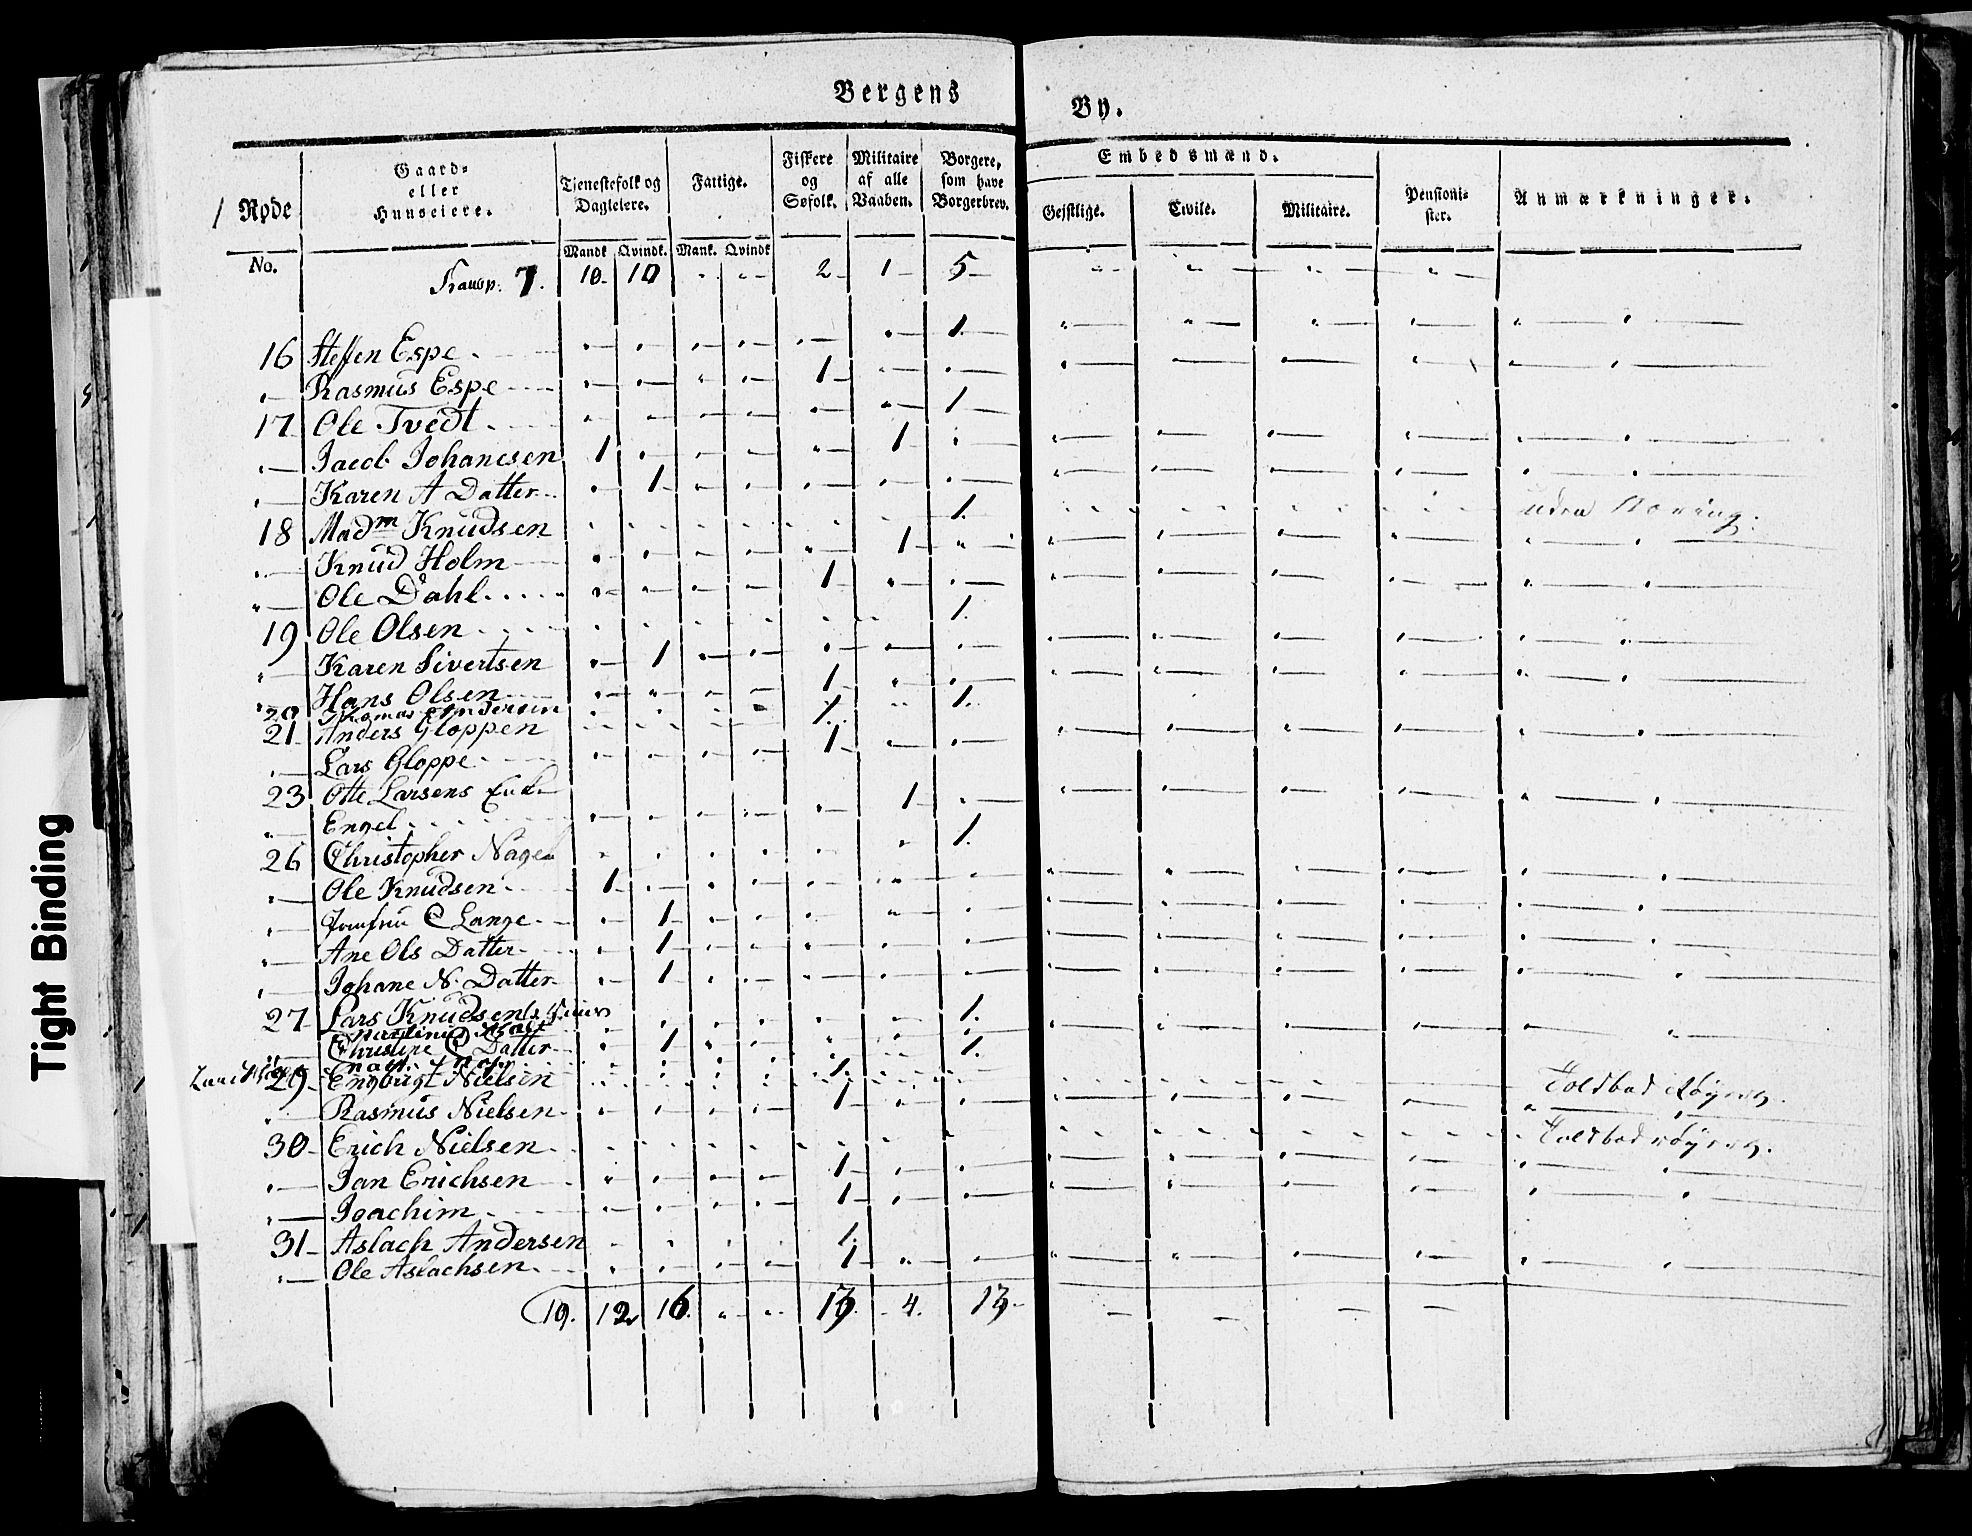 Bergens By.
1 Røde
Gaard- eller Huuseiere.
Tjenestefolk og Dagleiere.
Fattige.
Fiskere og Søfolk.
Militaire af alle Vaaben.
Borgere, som have Borgerbrev.
Embedsmænd.
Gejstlige. Civile. Militaire.
Pensionister.
Anmærkninger.
No. Mandk Qvindk. Mank. Qvindk
Transp. 7. 10 10 " " 2 1 5 " " " "
16 Steffen Espe 1.
" Rasmus Espe 1
17 Ole Tvedt 1
" Jacob Johannesen 1 1
" Karen A Datter 1
18 Madm Knudsen 1. uden Næring.
" Knud Holm 1
" Ole Dahl 1
19 Ole Olsen 1.
" Karen Sivertsen 1
" Hans Olsen 1
20 Thomas Andersen 1. 1.
21 Anders Gloppen
" Lars Gloppe 1
23 Otte Larsens Enke
" Engel 1
26 Christopher Nagel 1.
" Ole Knudsen 1
" Jomfru C Lange 1
" Ane Ols Datter 1
" Johane N. Datter 1
27 Lars Knudsen 1.
" Christine C Datter 1 1.
29 Engbrigt Nielsen 1. Toldbod
" Rasmus Nielsen 1
30 Erich Nielsen Toldbod
" Jan Erichsen 1
" Joachim 1
31 Aslach Andersen 1.
" Ole Aslachsen 1
19. 12 16. " " 13. 4. 13
Tight Binding